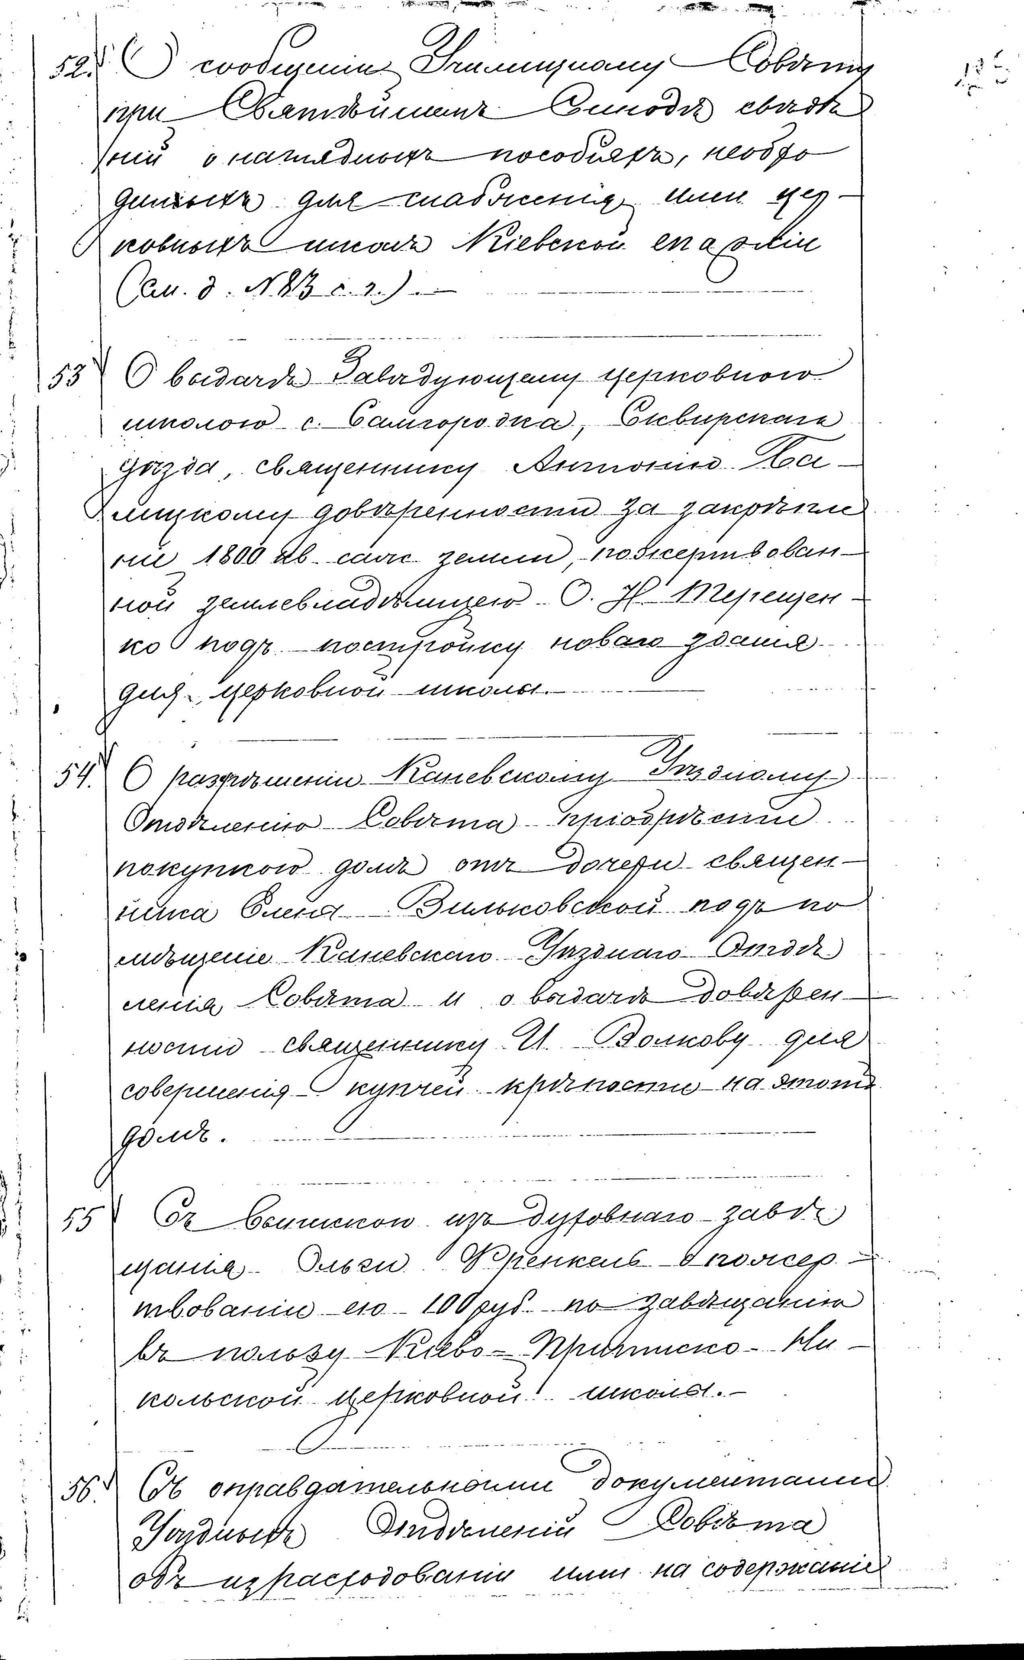 52. О сообщеніи Училищному Совѣту
при Святѣйшемъ Синодѣ свѣдѣ
ній о наглядныхъ пособіяхъ, необхо
димыхъ для снабженія ими цер-
ковныхъ школъ Кіевской епархіи
(см. д. № 83 с. г.).-
53 О выдачѣ Завѣдующему церковною
школою с. Самгородка, Сквирскаго
уѣзда, священнику Антонію
довѣренности за закрѣпле
ніе 1800 кв. саж. земли, пожертвован-
ной землевладѣлицею О. Н. Терещен-
ко подъ постройку новаго зданія
для церковной школы.-
54. О разрѣшеніи Каневскому Уѣздному
Отдѣленію Совѣта пріобрѣсти
покупкою домъ отъ дочери священ-
ника Елены Вильковской подъ по
мѣщеніе Каневскаго Уѣзднаго Отдѣ
ленія Совѣта и о выдачѣ довѣрен-
ности священнику И. Волкову для
совершенія купчей крѣпости на этотъ
домъ.
55 Съ выпискою изъ духовнаго завѣ
щанія Ольги Френкель о пожер-
твованіи ею 100 руб. по завѣщанію
въ пользу Кіево-Приписко-Ни-
кольской церковной школы.-
56. Съ оправдательными документами
Уѣздныхъ Отдѣленій Совѣта
объ израсходованіи ими на содержаніе